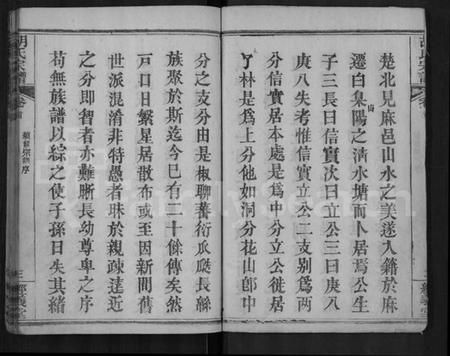 楚北見麻邑山水之美遂入籍於麻
遷白臬陽之清水塘而卜居焉公生
子三長曰信實次曰立公三曰庚八
庚八失考惟信實立公二支别爲兩
分信實居本處是爲中分立公徙居
了林是爲上分他如洞分花山郎中
分之支分由是椒聊蕃衍瓜瓞長緜
族聚於斯迄今已有二十餘傳矣然
戸口日繁星居散布或至因新間舊
世派混淆非特愚者昧於親疎遠近
之分即智者亦難晰長幼尊卑之序
苟無族譜以綜之使子孫日失其緒
胡氏宗譜
卷首
序
三
經義堂